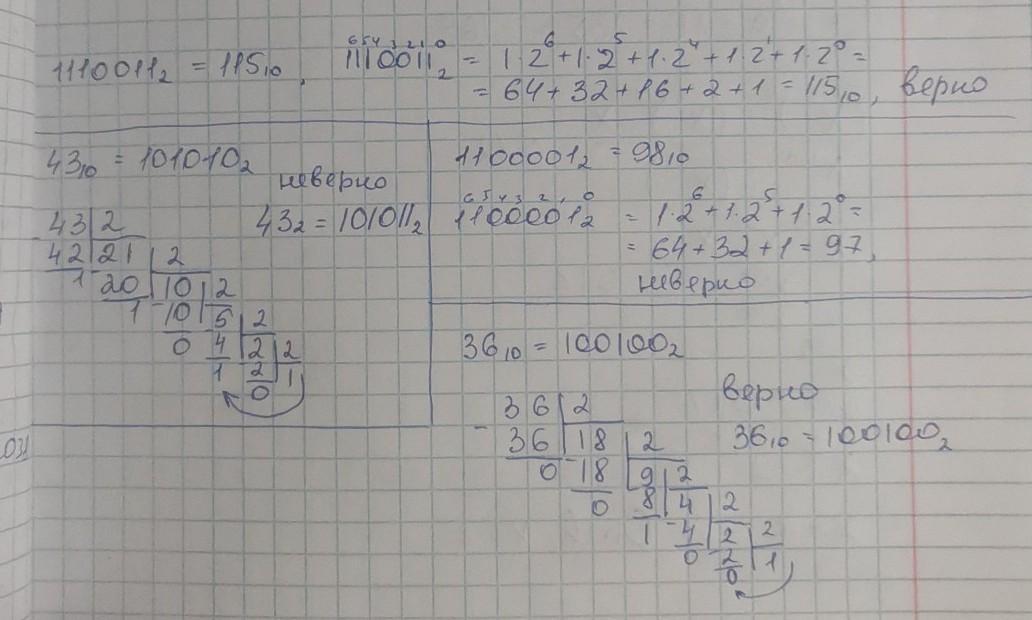 1110011₂ = 115₁₀,
6 5 4 3 2 1 0
1110011₂ = 1·2⁶+1·2⁵+1·2⁴+1·2¹+1·2⁰=
= 64+32+16+2+1 = 115₁₀, верно
43₁₀ = 101010₂
неверно
43 2
43₂ = 101011₂
42 21 2
1 20 10 2
1 10 5 2
0 4 2 2
1 2 1
0
1100001₂ = 98₁₀
6 5 4 3 2 1 0
1100001₂ = 1·2⁶+1·2⁵+1·2⁰=
= 64+32+1=97,
неверно
36₁₀ = 100100₂
верно
- 36 2
36 18 2
36₁₀ = 100100₂
0 -18 9 2
0 8 4 2
1 -4 2 2
0 2 1
0
031